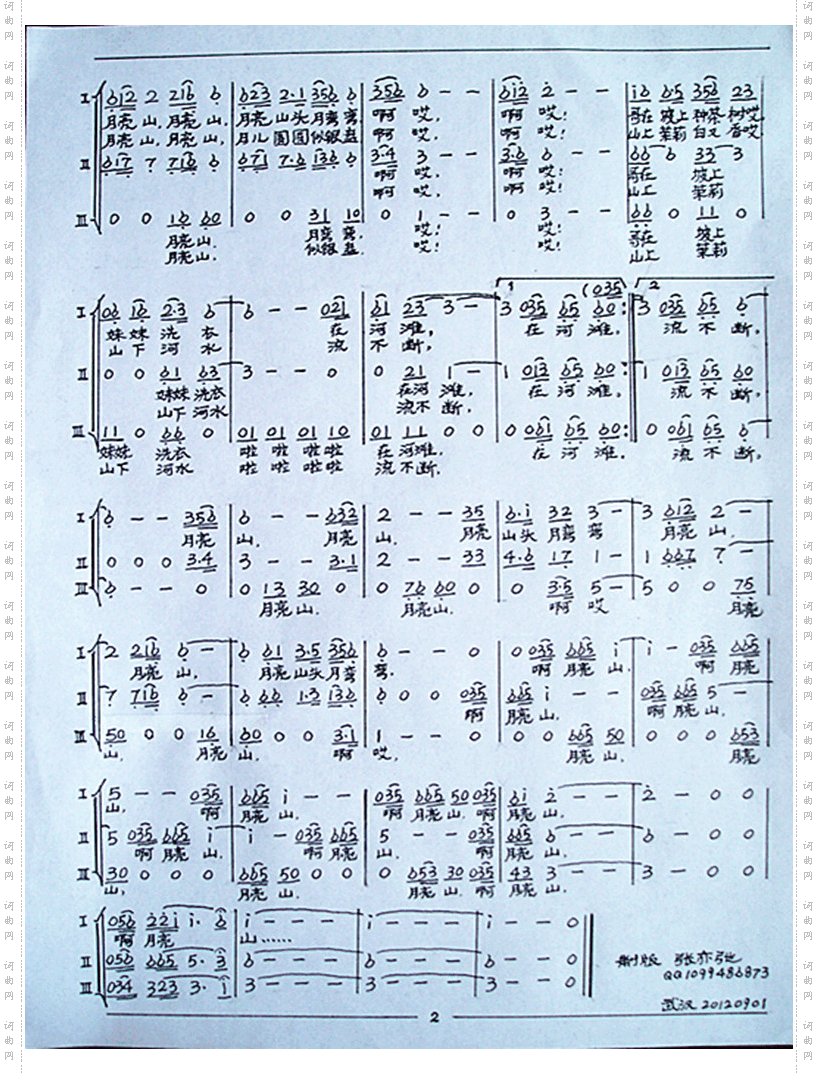 I 6̣12 2 216̣ 6̣ | 6̣23 2·1 356̣ 6̣ | 356 6 - - | 612 2 - - | i6 6·5 356 23
月亮 山, 月亮 山, 月亮 山头 月弯 弯, 啊 哎, 啊 哎! 哥在 坡上 种茶 树哎
月亮 山, 月亮 山, 月儿 圆圆 似银 盘, 啊 哎, 啊 哎! 山上 茉莉 白又 香哎
II 617 7 716 6 | 671 7·6 136 6 | 3·4 3 - - | 3·6 6 - - | 66 6 33 3
啊 哎, 啊 哎! 哥在 坡上
啊 哎, 啊 哎! 山上 茉莉
III 0 0 16 60 | 0 0 31 10 | 0 1 - - | 0 3 - - | 66 0 11 0
月亮 山. 月弯 弯. 哎! 哎! 哥在 坡上
月亮 山. 似银 盘. 哎! 哎! 山上 茉莉
1 (035 2
I 06 16 2·3 6 | 6 - - 021 | 61 23 3 - | 3 035 65 60 :| 3 035 65 6
妹妹 洗 衣 在 河 滩, 在 河 滩, 流 不 断,
山下 河 水 流 不 断,
II 0 0 61 63 | 3 - - 0 | 0 21 1 - | 1 013 65 60 :| 1 013 65 60
妹妹 洗衣 在河 滩, 在 河 滩, 流 不 断,
山下 河水 流不 断,
III 11 0 66 0 | 01 01 01 10 | 01 11 0 0 | 0 061 65 60 :| 0 061 65 6
妹妹 洗衣 啦 啦 啦啦 在 河滩. 在 河 滩. 流 不 断.
山下 河水 啦 啦 啦啦 流 不断.
I 6 - - 356 | 6 - - 632 | 2 - - 35 | 6·i 32 3 - | 3 612 2 -
月亮 山, 月亮 山. 月亮 山头 月弯 弯 月亮 山.
II 0 0 0 3·4 | 3 - - 3·1 | 2 - - 33 | 4·6 17 1 - | 1 667 7 -
III 6 - - 0 | 0 13 30 0 | 0 76 60 0 | 0 3·5 5 - | 5 0 0 75
月亮 山. 月亮 山. 啊 哎 月亮
I 2 216 6 - | 6 61 3·5 356 | 6 - - 0 | 0 035 665 i | i - 035 665
月亮 山, 月亮 山头 月弯 弯. 啊 月亮 山. 啊 月亮
II 7 716 6 - | 6 66 1·3 136 | 6 0 0 035 | 665 i - - | 035 665 5 -
啊 月亮 山. 啊 月亮 山.
III 50 0 0 16 | 60 0 0 3·1 | 1 - - 0 | 0 0 665 50 | 0 0 0 653
山. 月亮 山. 啊 哎, 月亮 山. 月亮
I 5 - - 035 | 665 i - - | 035 665 50 035 | 6i 2 - - | 2 - 0 0
山, 啊 月亮 山. 啊 月亮 山. 啊 月亮 山.
II 5 035 665 i | i - 035 665 | 5 - - 035 | 665 6 - - | 6 - 0 0
啊 月亮 山. 啊 月亮 山. 啊 月亮 山.
III 30 0 0 0 | 665 50 0 0 | 0 653 30 035 | 43 3 - - | 3 - 0 0
山, 月亮 山. 月亮 山. 啊 月亮 山.
I 056 22i i· 6 | i - - - | i - - - | i - - 0
啊 月亮 山……
II 056 665 5· 3 | 6 - - - | 6 - - - | 6 - - 0
III 034 323 3· 1 | 3 - - - | 3 - - - | 3 - - 0
制版 张亦弛
QQ1099486873
武汉 20120901
2
词曲网